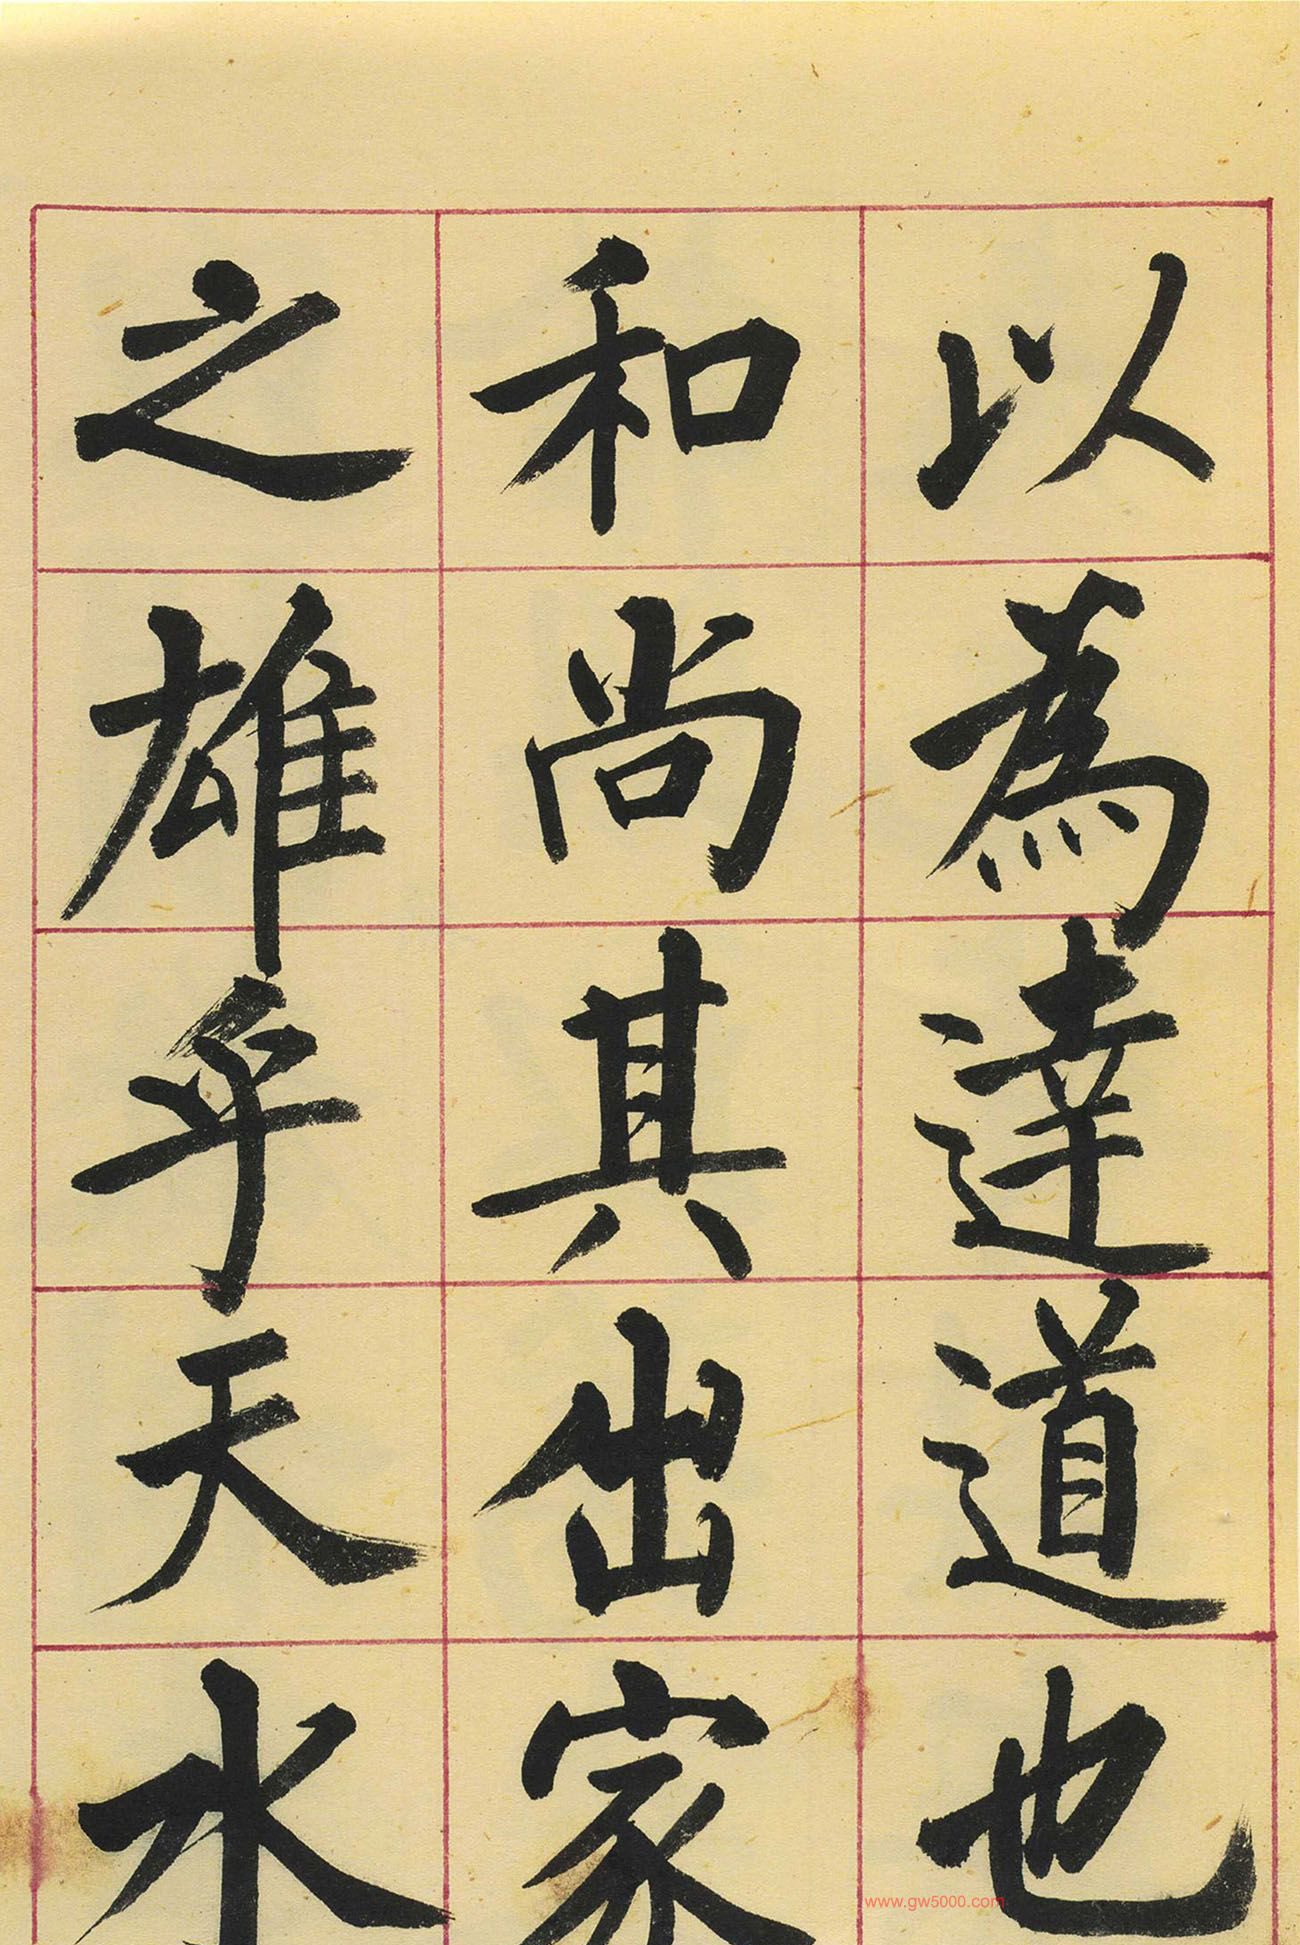 以為達道也
和尚其出家
之雄乎天水
www.gw5000.com